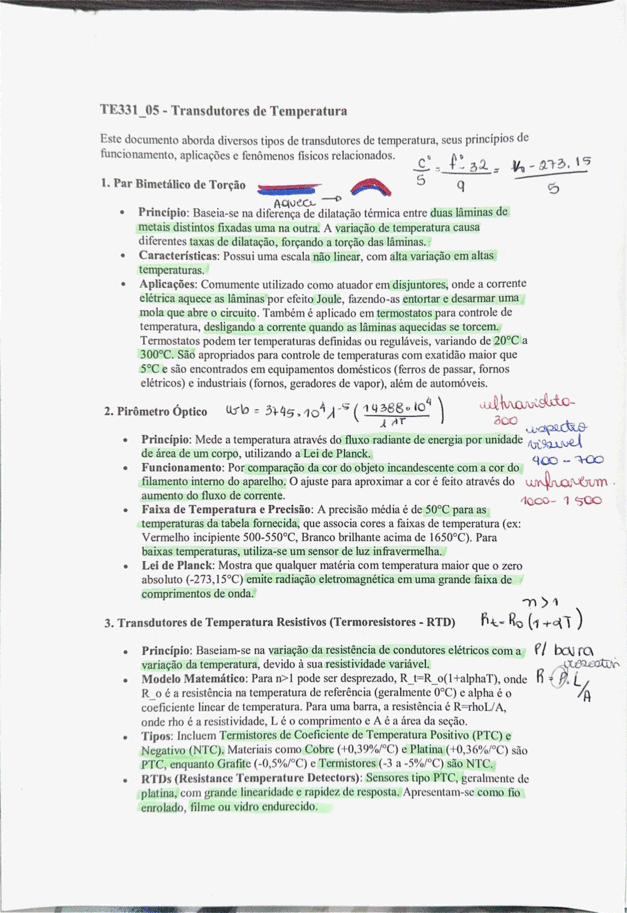 TE331_05 - Transdutores de Temperatura
Este documento aborda diversos tipos de transdutores de temperatura, seus princípios de
funcionamento, aplicações e fenômenos físicos relacionados.
C° = f° - 32 = K - 273.15
5 9 5
1. Par Bimetálico de Torção
Aquece →
• Princípio: Baseia-se na diferença de dilatação térmica entre duas lâminas de
metais distintos fixadas uma na outra. A variação de temperatura causa
diferentes taxas de dilatação, forçando a torção das lâminas.
• Características: Possui uma escala não linear, com alta variação em altas
temperaturas.
• Aplicações: Comumente utilizado como atuador em disjuntores, onde a corrente
elétrica aquece as lâminas por efeito Joule, fazendo-as entortar e desarmar uma
mola que abre o circuito. Também é aplicado em termostatos para controle de
temperatura, desligando a corrente quando as lâminas aquecidas se torcem.
Termostatos podem ter temperaturas definidas ou reguláveis, variando de 20°C a
300°C. São apropriados para controle de temperaturas com exatidão maior que
5°C e são encontrados em equipamentos domésticos (ferros de passar, fornos
elétricos) e industriais (fornos, geradores de vapor), além de automóveis.
2. Pirômetro Óptico
ultravioleta-
300
espectro
visível
400 - 700
infraverm.
1000 - 1500
• Princípio: Mede a temperatura através do fluxo radiante de energia por unidade
de área de um corpo, utilizando a Lei de Planck.
• Funcionamento: Por comparação da cor do objeto incandescente com a cor do
filamento interno do aparelho. O ajuste para aproximar a cor é feito através do
aumento do fluxo de corrente.
• Faixa de Temperatura e Precisão: A precisão média é de 50°C para as
temperaturas da tabela fornecida, que associa cores a faixas de temperatura (ex:
Vermelho incipiente 500-550°C, Branco brilhante acima de 1650°C). Para
baixas temperaturas, utiliza-se um sensor de luz infravermelha.
• Lei de Planck: Mostra que qualquer matéria com temperatura maior que o zero
absoluto (-273,15°C) emite radiação eletromagnética em uma grande faixa de
comprimentos de onda.
n>1
3. Transdutores de Temperatura Resistivos (Termoresistores - RTD)
Rt=R0(1+αT)
• Princípio: Baseiam-se na variação da resistência de condutores elétricos com a
variação da temperatura, devido à sua resistividade variável.
P/ barra
R = ρ.L/A
• Modelo Matemático: Para n>1 pode ser desprezado, R_t=R_o(1+alphaT), onde
R_o é a resistência na temperatura de referência (geralmente 0°C) e alpha é o
coeficiente linear de temperatura. Para uma barra, a resistência é R=rhoL/A,
onde rho é a resistividade, L é o comprimento e A é a área da seção.
• Tipos: Incluem Termistores de Coeficiente de Temperatura Positivo (PTC) e
Negativo (NTC). Materiais como Cobre (+0,39%/°C) e Platina (+0,36%/°C) são
PTC, enquanto Grafite (-0,5%/°C) e Termistores (-3 a -5%/°C) são NTC.
• RTDs (Resistance Temperature Detectors): Sensores tipo PTC, geralmente de
platina, com grande linearidade e rapidez de resposta. Apresentam-se como fio
enrolado, filme ou vidro endurecido.